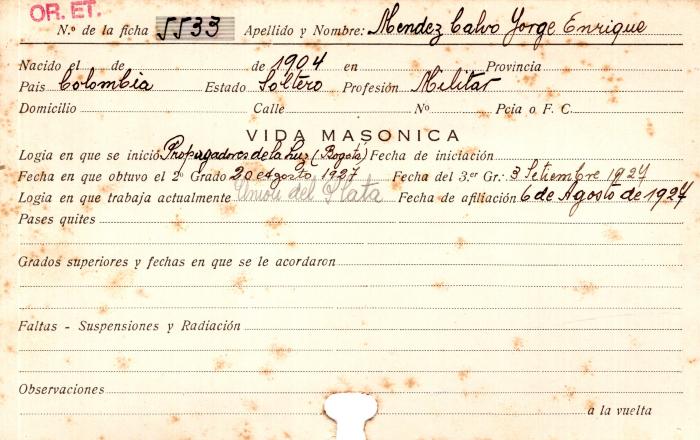 OR. ET.
N.º de la ficha 5533 Apellido y Nombre: Mendez Calvo Jorge Enrique
Nacido el de de 1904 en Provincia
Pais Colombia Estado Soltero Profesión Militar
Domicilio Calle Nº. Pcia o F. C.
VIDA MASONICA
Logia en que se inició Propagadores de la Luz (Bogotá) Fecha de iniciación
Fecha en que obtuvo el 2º Grado 20 Agosto 1927 Fecha del 3.er Gr.: 3 Setiembre 1927
Logia en que trabaja actualmente Union del Plata Fecha de afiliación 6 de Agosto de 1927
Pases quites
Grados superiores y fechas en que se le acordaron
Faltas - Suspensiones y Radiación
Observaciones
a la vuelta